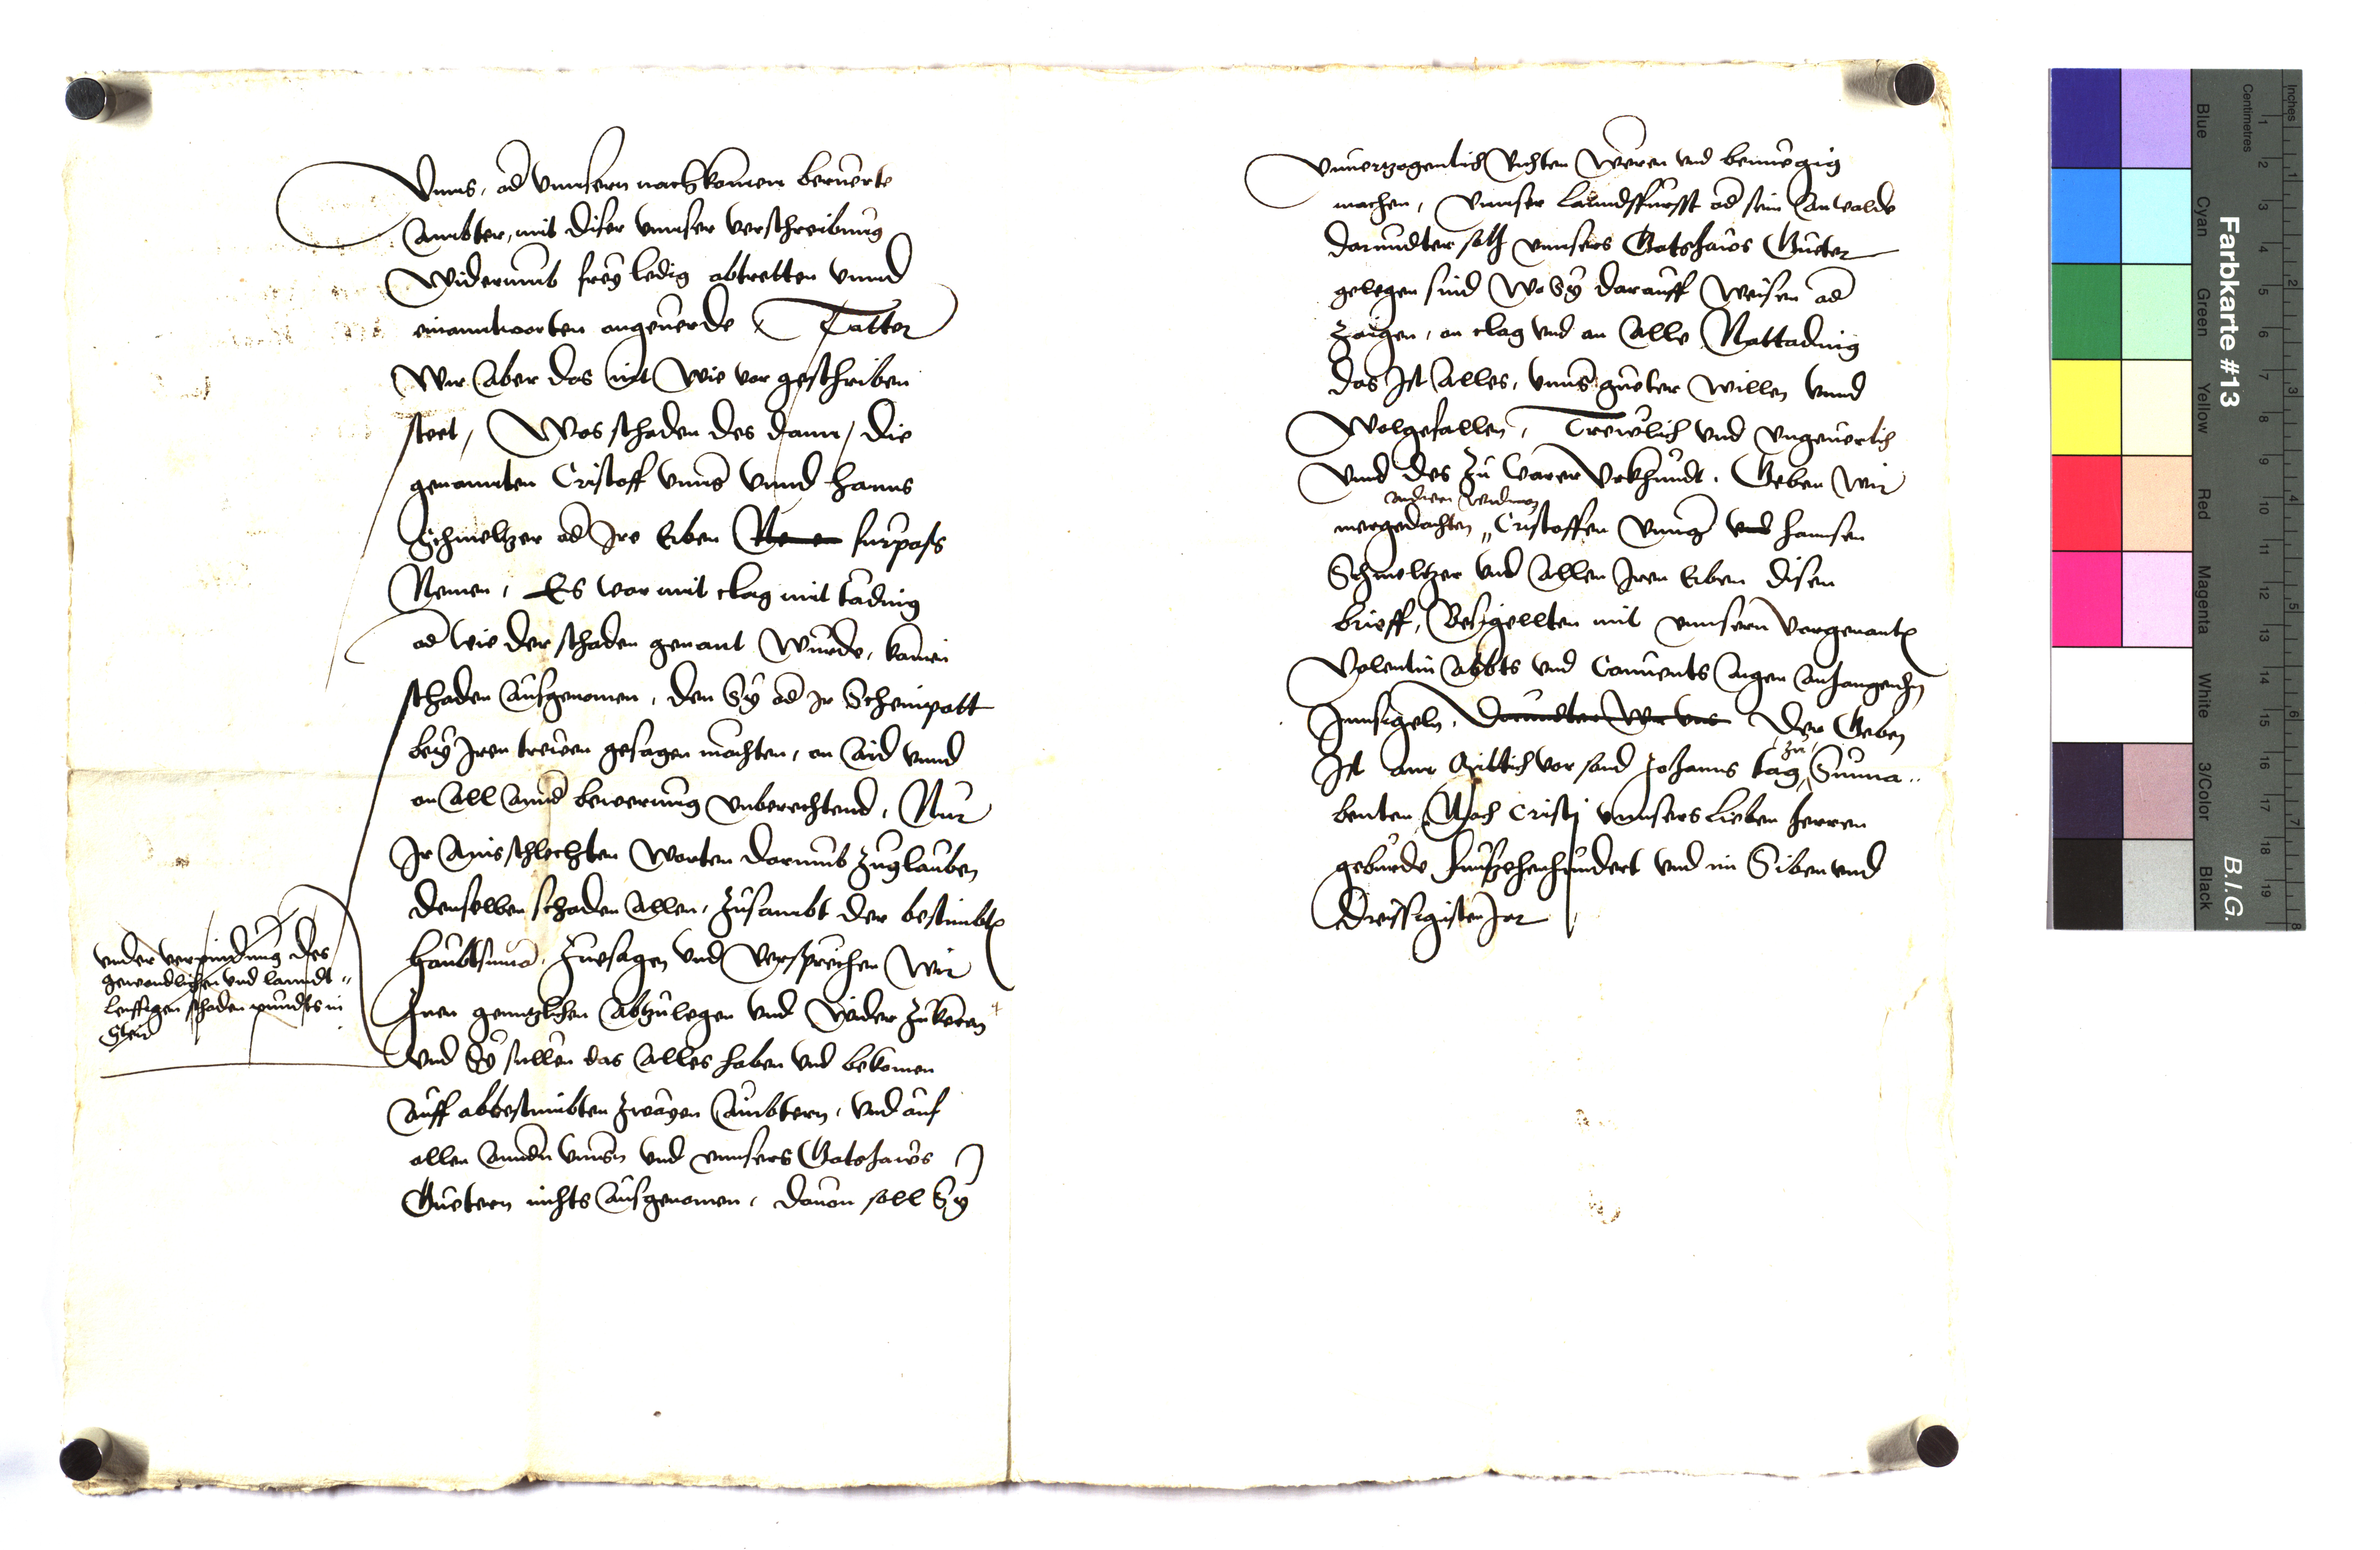 Vnns, od vnnsern nachkomen beruerte
Ambter, mit diser vnnser verschreibung
Widerumb frey ledig abtretten vnnd
einanntworten angeuerde Tatten
Wir Aber das nit Wie vor geschriben
steet, Was schaden des dann, die
genannten Cristoff vnnd hanns
Schmeltzer od Ire Erben furpass
Nemen, Es war mit clag mit tading
od wie der schaden genant Wurde, kainen
schaden Ausgenomen, den Sy od Ir Scheinpott
bey Iren trewen gesagen mochten, on Aid vnnd
on All Annd bewerung vnberechtend, Nur
Ir Ains schlechten Worten darumb Zuglauben
denselben schaden Allen, Zusambt der bestimbten
haubtsuma, Zuesagen vnd Versprechen Wir
Inen genntzlichen Abzulegen vnd Wider Zukeren
vnd Sy sullen das Alles haben vnd bekomen
Auff abbestimbten Zwayen Ambtern, vnd auf
allen Anndn vnnsn vnd vnnsers Gotshaws
Guetern nichts Ausgenomen, dauon soll Sy
vnder verpindung des
gewondlichen vnd lanndt
leuffigen schaden pundts in
Steir
Vnuerzogenlich Richten Weren vnd benuegig
machen, Vnnser Lanndsfursst od sein Anwalde
darundter solh vnnsers Gotshaws Gueter
gelegen sind Wo Sy darauff Weisen od
Zaigen, on clag vnd on Alle Rattading
das Ist Alles, vnns gueter Willen vnnd
Wolgefallen, Trewlich vnd vngeuerlich
Vnnd des Zu Warer Vrkhundt, Geben Wir
mergedachten Cristoffen vnd hannsen
Schmeltzer vnd Allen Iren Erben disen
brieff, Besigellten mit vnnsern Vorgenanten
Valentin Abbts vnd Conuents Aigen Anhangenden
Innsigeln, Darundter Wir vns Der Geben
Ist am Mittich vor sand Johanns tag zu Sunna
benten, Nach Cristi vnnsers Lieben herren
geburde Funfzehenhundert vnd im Siben vnd
Dreissigisten Jar
Farbkarte #13
B.I.G.
Inches
Centimetres
Blue
Cyan
Green
Yellow
Red
Magenta
White
3/Color
Black